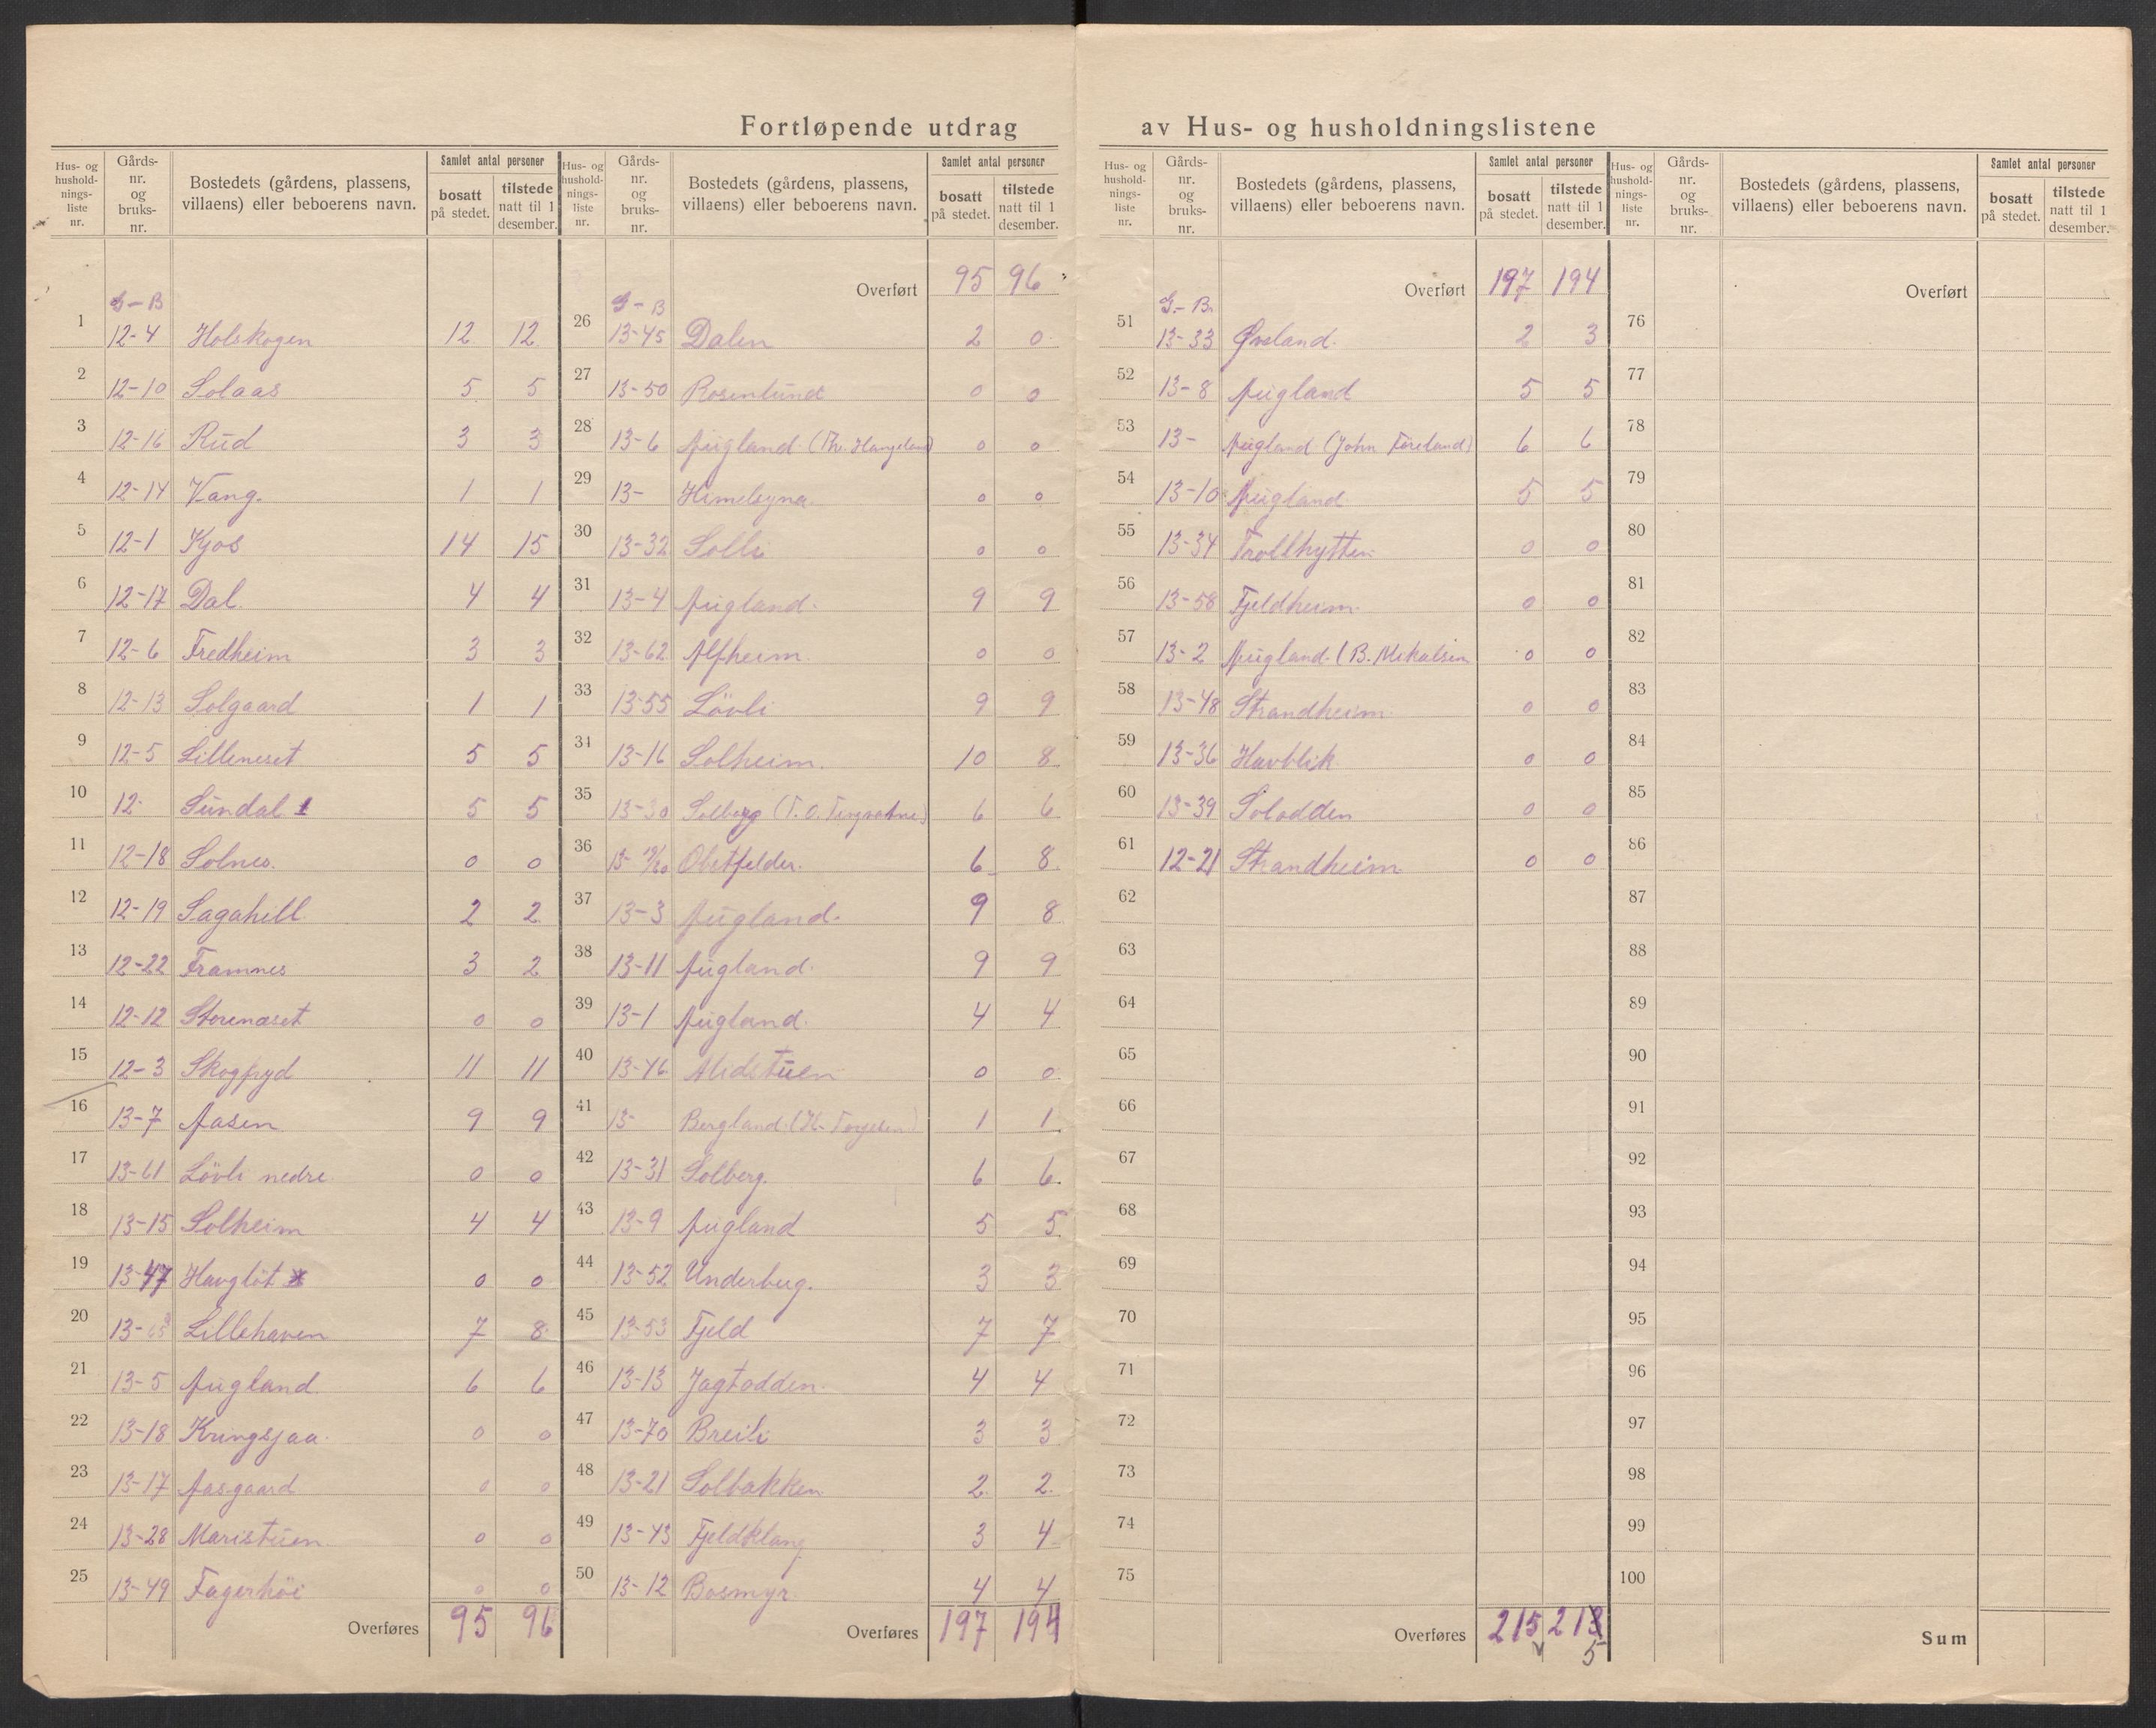 Fortløpende utdrag av Hus- og husholdningslistene
Hus- og hushold-nings-liste nr. Gårds-nr. og bruks-nr. Bostedets (gårdens, plassens, villaens) eller beboerens navn. Samlet antal personer bosatt på stedet. tilstede natt til 1 desember.
G-B
1 12-4 Holskogen 12 12
2 12-10 Solaas 5 5
3 12-16 Rud 3 3
4 12-14 Vang. 1 1
5 12-1 Kjos 14 15
6 12-17 Dal. 4 4
7 12-6 Fredheim 3 3
8 12-13 Solgaard 1 1
9 12-5 Lilleneset 5 5
10 12- Sundal 1 5 5
11 12-18 Solnes. 0 0
12 12-19 Sagahell 2 2
13 12-22 Framnes 3 2
14 12-12 Storenæset 0 0
15 12-3 Skogfryd 11 11
16 13-7 Aasen 9 9
17 13-61 Lövli nedre 0 0
18 13-15 Solheim 4 4
19 13-47 Havgløt 0 0
20 13- Lillehaven 7 8
21 13-5 Augland. 6 6
22 13-18 Kringsjaa. 0 0
23 13-17 Aasgaard 0 0
24 13-28 Maristuen 0 0
25 13-49 Fagerhöi 0 0
Overføres 95 96
Hus- og hushold-nings-liste nr. Gårds-nr. og bruks-nr. Bostedets (gårdens, plassens, villaens) eller beboerens navn. Samlet antal personer bosatt på stedet. tilstede natt til 1 desember.
Overført 95 96
G-B
26 13-45 Dalen 2 0
27 13-50 Rosenlund 0 0
28 13-6 Augland. 0 0
29 13- 0 0
30 13-32 Solli 0 0
31 13-4 Augland. 9 9
32 13-62 Alfheim. 0 0
33 13-55 Lövli 9 9
34 13-16 Solheim. 10 8
35 13-30 Solberg 6 6
36 13- 19/20 Obstfelder. 6 8
37 13-3 Augland. 9 8
38 13-11 Augland. 9 9
39 13-1 Augland. 4 4
40 13-46 Midstuen 0 0
41 13- Bergland. 1 1
42 13-31 Solberg. 6 6
43 13-9 Augland 5 5
44 13-52 Underberg. 3 3
45 13-53 Fjeld 7 7
46 13-13 Jagtodden. 4 4
47 13-70 Breili 3 3
48 13-21 Solbakken 2 2
49 13-43 Fjeldklang 3 4
50 13-12 Bosmyr. 4 4
Overføres 197 194
Hus- og hushold-nings-liste nr. Gårds-nr. og bruks-nr. Bostedets (gårdens, plassens, villaens) eller beboerens navn. Samlet antal personer bosatt på stedet. tilstede natt til 1 desember.
Overført 197 194
G.-B.
51 13-33 Øveland. 2 3
52 13-8 Augland 5 5
53 13- Augland (John Füreland) 6 6
54 13-10 Augland 5 5
55 13-34 Trollhytten 0 0
56 13-58 Fjeldheim. 0 0
57 13-2 Augland. (B. Mikalsen 0 0
58 13-48 Strandheim 0 0
59 13-36 Havblik 0 0
60 13-39 Solodden 0 0
61 12-21 Strandheim 0 0
62
63
64
65
66
67
68
69
70
71
72
73
74
75
Overføres 215 213
5
Hus- og hushold-nings-liste nr. Gårds-nr. og bruks-nr. Bostedets (gårdens, plassens, villaens) eller beboerens navn. Samlet antal personer bosatt på stedet. tilstede natt til 1 desember.
Overført
76
77
78
79
80
81
82
83
84
85
86
87
88
89
90
91
92
93
94
95
96
97
98
99
100
Sum